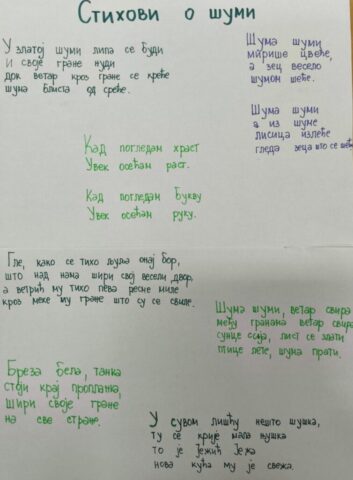 Стихови о шуми
У златој шуми липа се буди
и своје гране нуди
док ветар кроз гране се креће
шума блиста од среће.
Шума шуми
мирише цвеће,
а зец весело
шумом шеће.
Шума шуми
а из шуме
лисица излеће
гледа зеца што се
Кад погледам храст
Увек осећам раст.
Кад погледам букву
Увек осећам руку.
Гле, како се тихо љуља онај бор,
што над нама шири свој весели двор,
а ветрић му тихо пева ресне миле
кроз меке му гране што су се свиле.
Шума шуми, ветар свира
међу гранама ветар свира
сунце сија, лист се злати
птице лете, шума прати.
Бреза бела, танка
стоји крај пропланка,
шири своје гране
на све стране.
У сувом лишћу нешто шушка,
ту се крије мала њушка
то је јежић Јежа
нова кућа му је свежа.